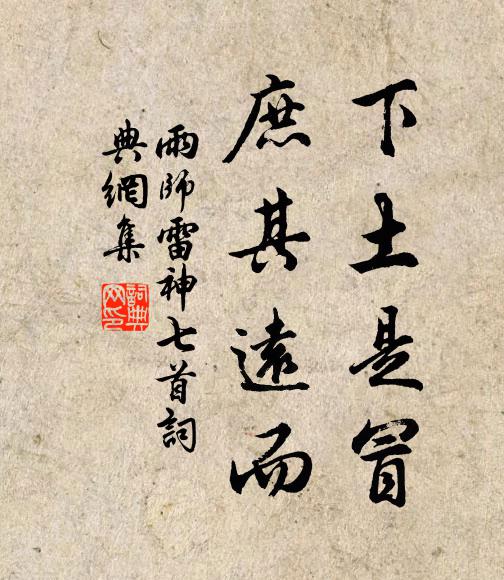 下土是冒
庶其遠而
雨師雷神七首詞
典網集
詞典
网印